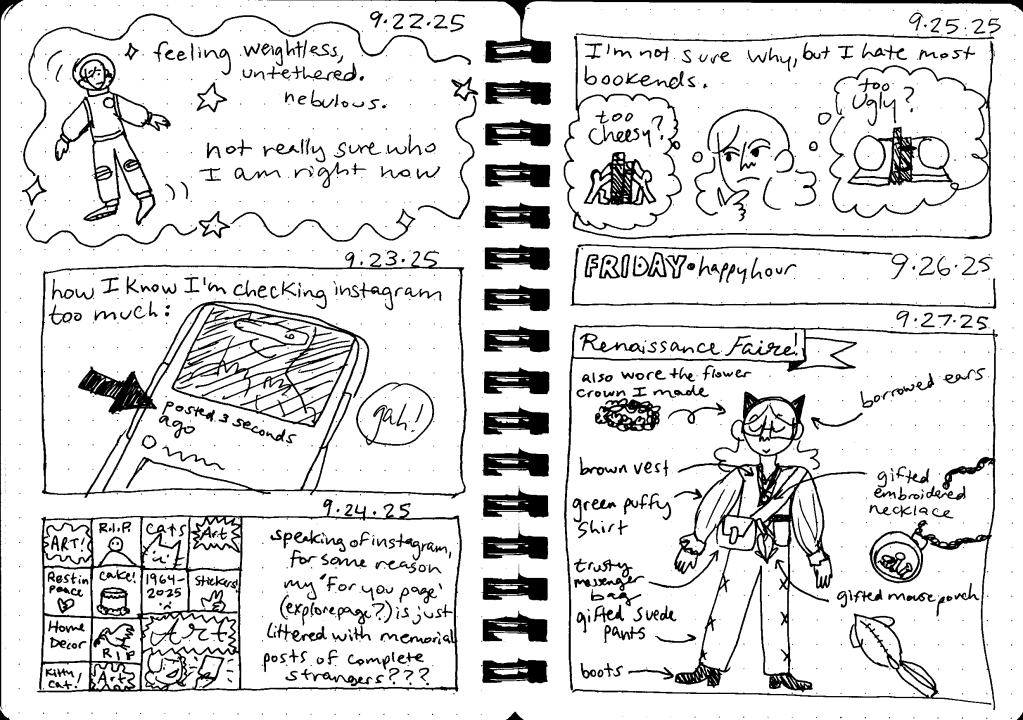 9.22.25
feeling weightless,
untethered.
nebulous.
not really sure who
I am right now
9.23.25
how I know I'm checking instagram
too much:
posted 3 seconds
ago
gah!
9.24.25
ART!
R.I.P.
cats
Art
Rest in
peace
cake!
1964-
2025
stickers!
Home
Decor
RIP
Art
Kitty/
cat!
Art
speaking of instagram,
for some reason
my 'for you page'
(explore page?) is just
littered with memorial
posts of complete
strangers???
9.25.25
I'm not sure why, but I hate most
bookends.
too
cheesy?
too
ugly?
FRIDAY • happy hour
9.26.25
9.27.25
Renaissance Faire!
also wore the flower
crown I made
borrowed ears
brown vest
green puffy
shirt
gifted
embroidered
necklace
trusty
messenger
bag
gifted mouse pouch
gifted suede
pants
boots